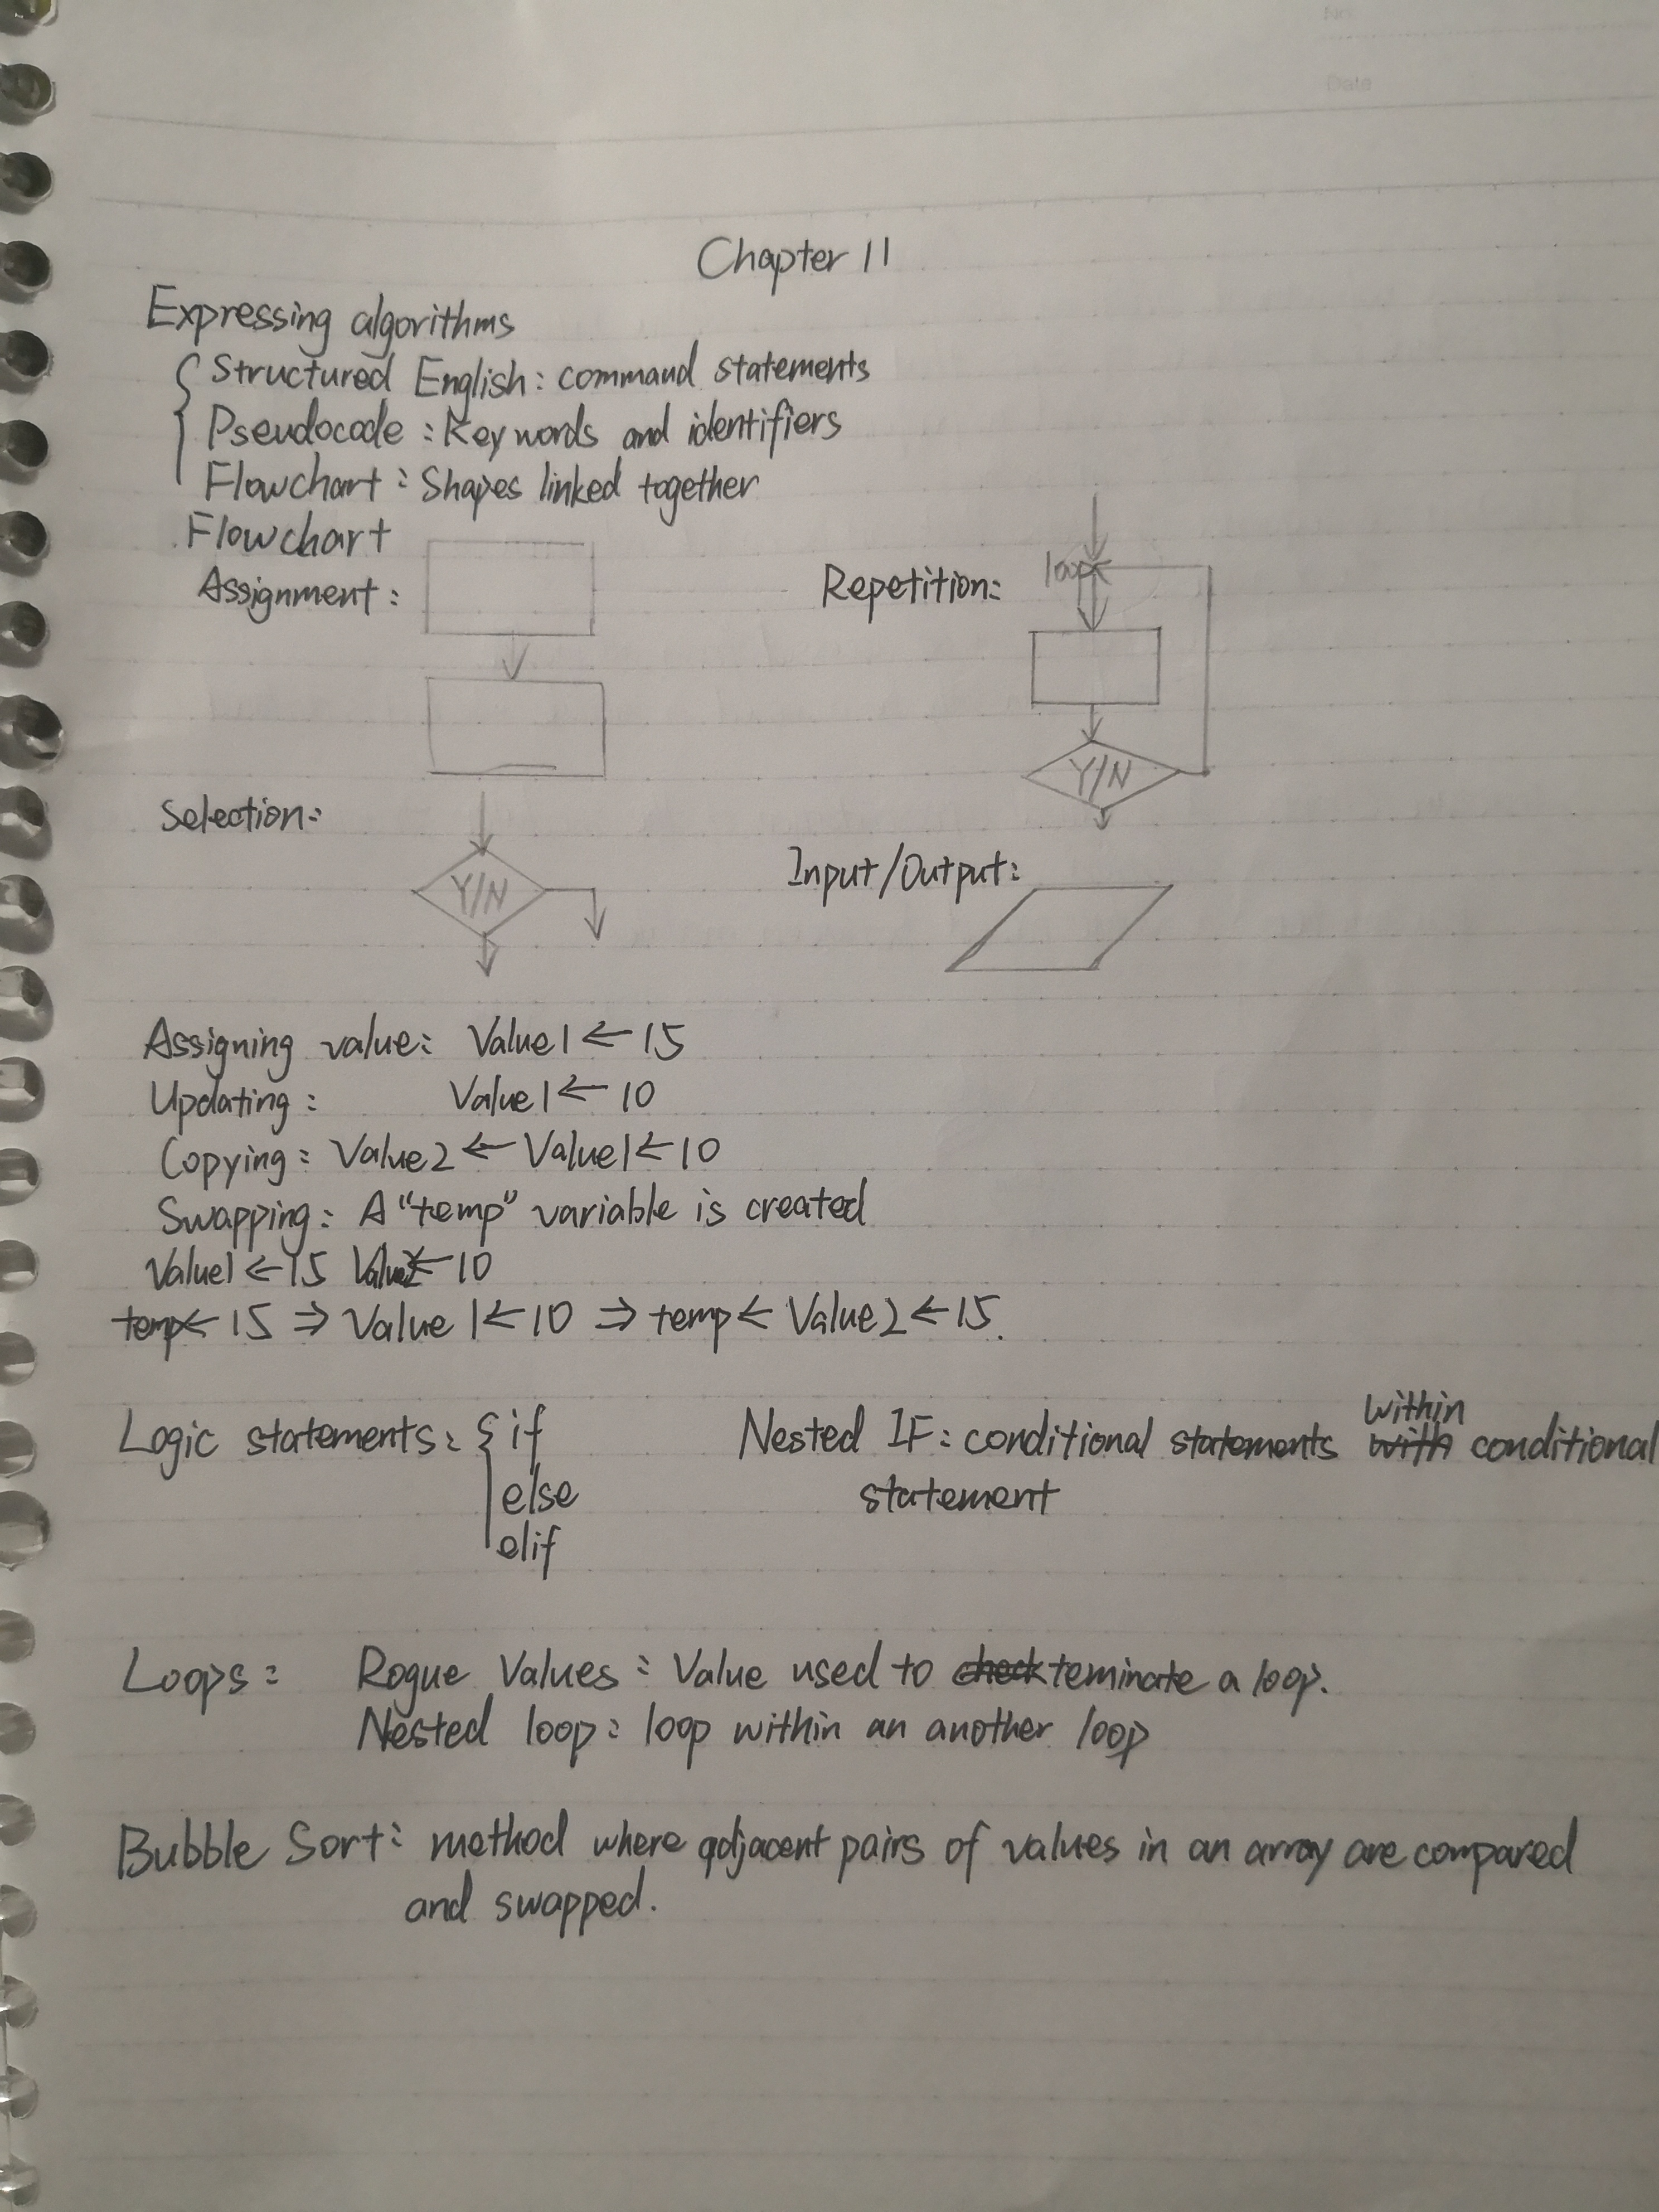 No.
Date
Chapter 11
Expressing algorithms
Structured English: command statements
Pseudocode: Key words and identifiers
Flowchart: Shapes linked together
Flowchart
Assignment:
Repetition:
loop
Y/N
Selection:
Y/N
Input/Output:
Assigning value: Value1 ← 15
Updating: Value1 ← 10
Copying: Value2 ← Value1 ← 10
Swapping: A "temp" variable is created
Value1 ← 15 Value2 ← 10
temp ← 15 ⇒ Value1 ← 10 ⇒ temp ← Value2 ← 15.
Logic statements: { if
else
elif
Nested IF: conditional statements with within conditional
statement
Loops: Rogue Values: Value used to check teminate a loop.
Nested loop: loop within an another loop
Bubble Sort: method where adjacent pairs of values in an array are compared
and swapped.